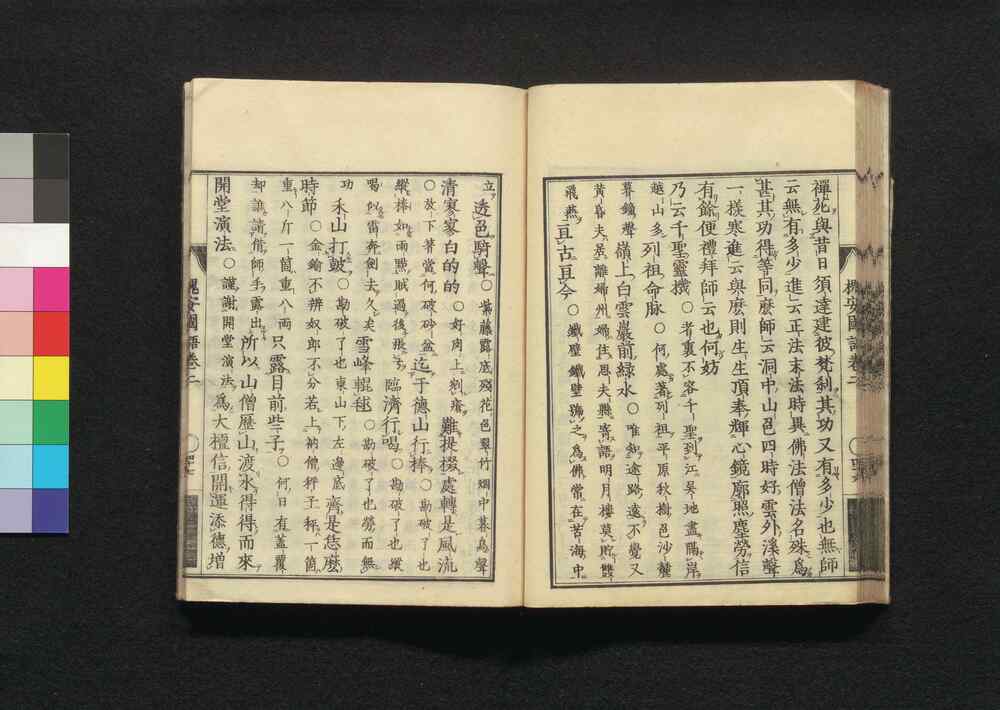 禪苑與昔日須達建彼梵刹其功又有多少也無師
云無有多少進云正法末法時異佛法僧法名殊爲
甚其功得等同麼師云洞中山邑四時好雲外溪聲
一樣寒進云與麼則生生頂奉輝心鏡廓照塵勞信
有餘便禮拜師云也何妨
乃云千聖靈機○者裏不容千聖到江吳地盡隔岸
越山多列祖命脈○何處著列祖平原秋樹邑沙麓
暮鐘聲嶺上白雲巖前綠水○唯知途路遠不覺又
黄昏夫居離婦州婦住恩夫縣寄語明月樓莫貯雙
飛燕亘古亘今○鐵壁鐵壁強之爲佛常在苦海中
槐安國語卷二
立透色騎聲○紫藤露底殘花邑翠竹烟中暮鳥聲
清寥寥白的的○好肉上剜瘡難提掇處轉是風流
○放下著當何破砂盆迄于德山行棒○勘破了也
縱棒如雨點賊過後張弓臨濟行喝○勘破了也縱
喝似雷奔劍去久矣雪峰輥毬○勘破了也勞而無
功禾山打皷○勘破了也東山下左邊底齊是恁麼
時節○金鍮不辨奴郎不分若上衲僧秤子秤一箇
重八斤一箇重八兩只露目前些子○何日有蓋覆
却誰請借師手露出所以山僧歷山渡水得得而來
開堂演法○謹謝開堂演法爲大檀信開運添德增
槐安國語卷二